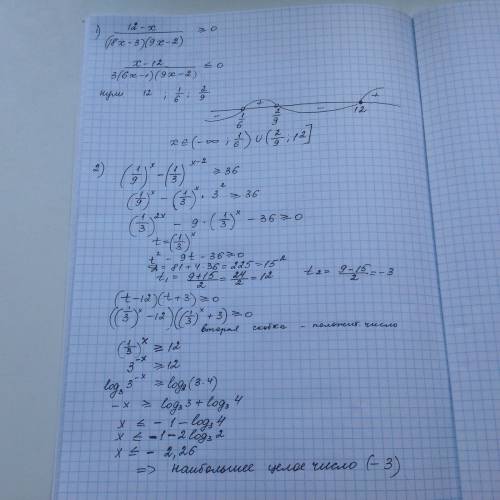 1) (12-x)/((18x-3)(9x-2)) ≥ 0
(x-12)/(3(6x-1)(9x-2)) ≤ 0
нули 12 ; 1/6 ; 2/9
- + - +
1/6 2/9 12
x ∈ (-∞ ; 1/6) ∪ (2/9 ; 12]
2) (1/9)^x - (1/3)^(x-2) ≥ 36
(1/9)^x - (1/3)^x · 3^2 ≥ 36
(1/3)^(2x) - 9 · (1/3)^x - 36 ≥ 0
t = (1/3)^x
t^2 - 9t - 36 ≥ 0
D = 81 + 4·36 = 225 = 15^2
t1 = (9+15)/2 = 24/2 = 12 t2 = (9-15)/2 = -3
(t-12)(t+3) ≥ 0
((1/3)^x - 12)((1/3)^x + 3) ≥ 0
вторая скобка - положит. число
(1/3)^x ≥ 12
3^(-x) ≥ 12
log3 3^(-x) ≥ log3 (3·4)
-x ≥ log3 3 + log3 4
x ≤ -1 - log3 4
x ≤ -1 - 2log3 2
x ≤ - 2,26
=> наибольшее целое число (-3)